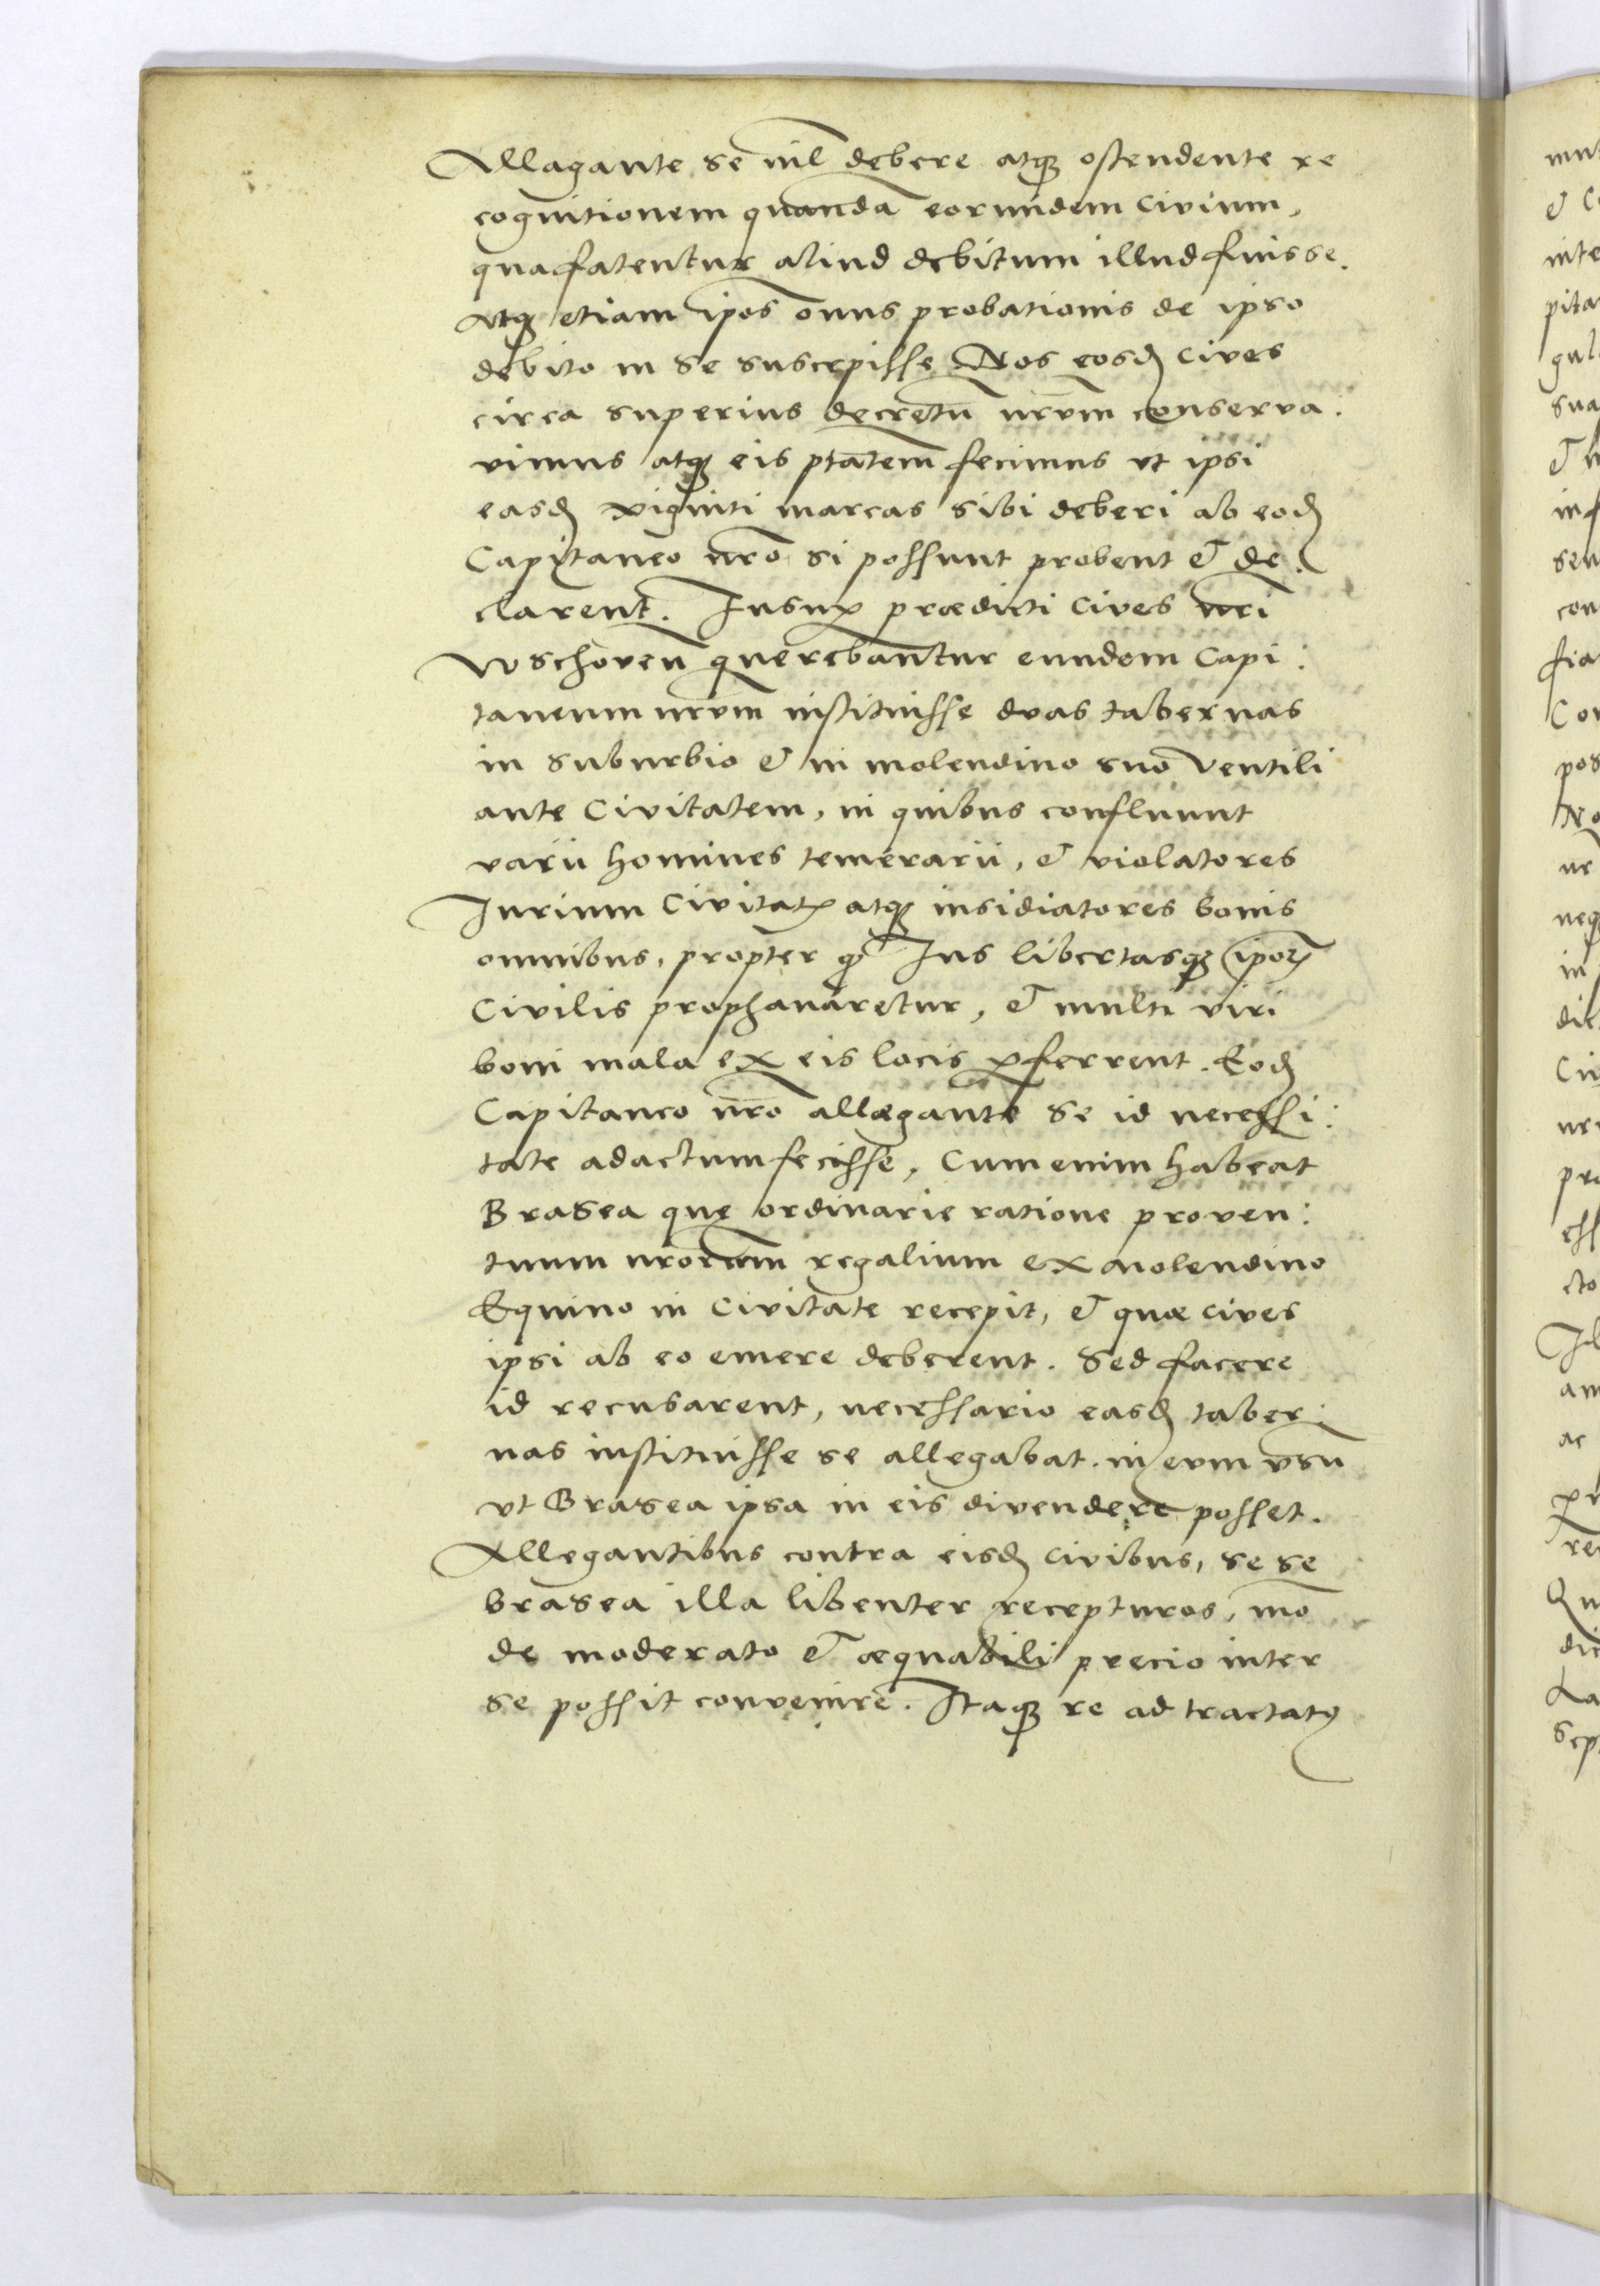 Allagante se nil debere atq; ostendente re
cognitionem quandā eorundem Civium,
qua fatentur aliud debitum illud fuisse.
Atq; etiam ipos onus probationis de ipso
debito in se suscepisse Nos eosd cives
circa superius decretū nrvm conserva:
vimus atq; eis ptatem fecimus vt ipsi
easd viginti marcas sibi deberi ab eod
Capitaneo nro si possunt probent & de:
clarent. Insup prædicti Cives nri
Wschoven querebantur eundem Capi:
taneum nrvm instituisse dvas tabernas
in suburbio & in molendino suo Ventili
ante Civitatem, in quibus confluunt
varii homines temerarii, & violatores
Jurium Civitatis atq; insidiatores bonis
omnibus, propter qd Ius libertasq; ipor
Civilis prophanaretur, & multi viri
boni mala ex eis locis pferrent. Eod
Capitaneo nro allægante se id necessi:
tate adactum fecisse, Cum enim habeat
Brasea quę ordinarie ratione proven:
tuum nrorum regalium ex molendino
Equino in Civitate recepit, & quæ cives
ipsi ab eo emere deberent. Sed facere
id recusarent, necessario easd taber:
nas instituisse se allegabat. in eum vsū
vt Brasea ipsa in eis divendere posset.
Allegantibus contra eisd civibus, se se
brasea illa libenter recepturos, mo
de moderato & æquabili precio inter
se possit convenire. Itaq; re ad tractatus